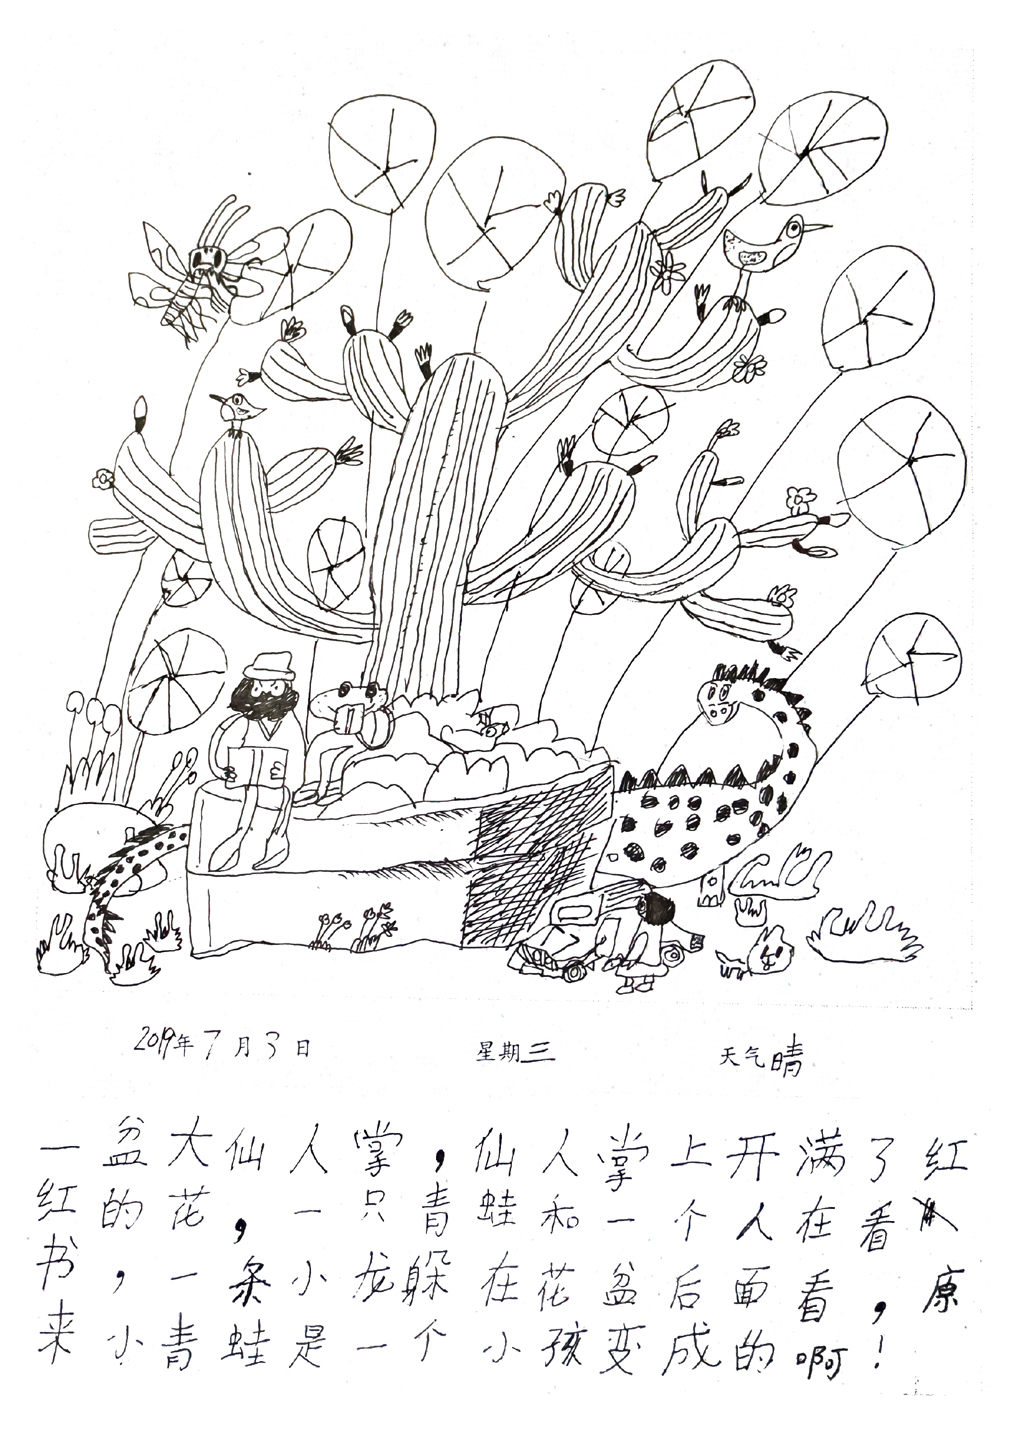 2019年7月3日 星期三 天气晴
一盆大仙人掌,仙人掌上开满了红
红的花,一只青蛙和一个人在看
书,一条小龙躲在花盆后面看,原
来小青蛙是一个小孩变成的啊!